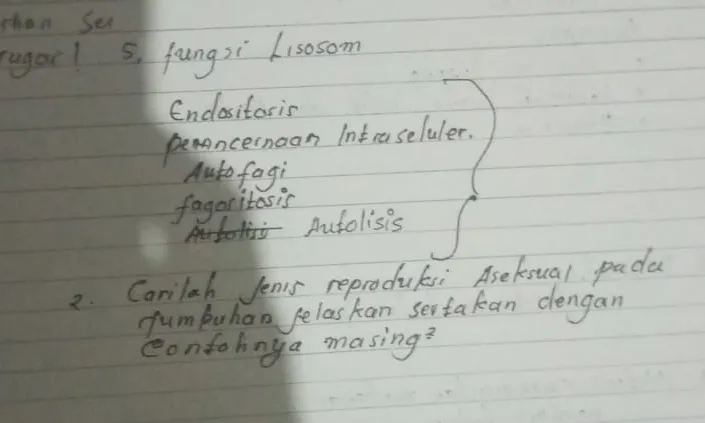 rhan Sel
Tugas! 5. fungsi Lisosom
Endositosis
pencernaan Intraseluler.
Autofagi
fagositosis
Autolisi Autolisis
2. Carilah Jenis reproduksi Aseksual pada
tumbuhan jelaskan sertakan dengan
Contohnya masing²